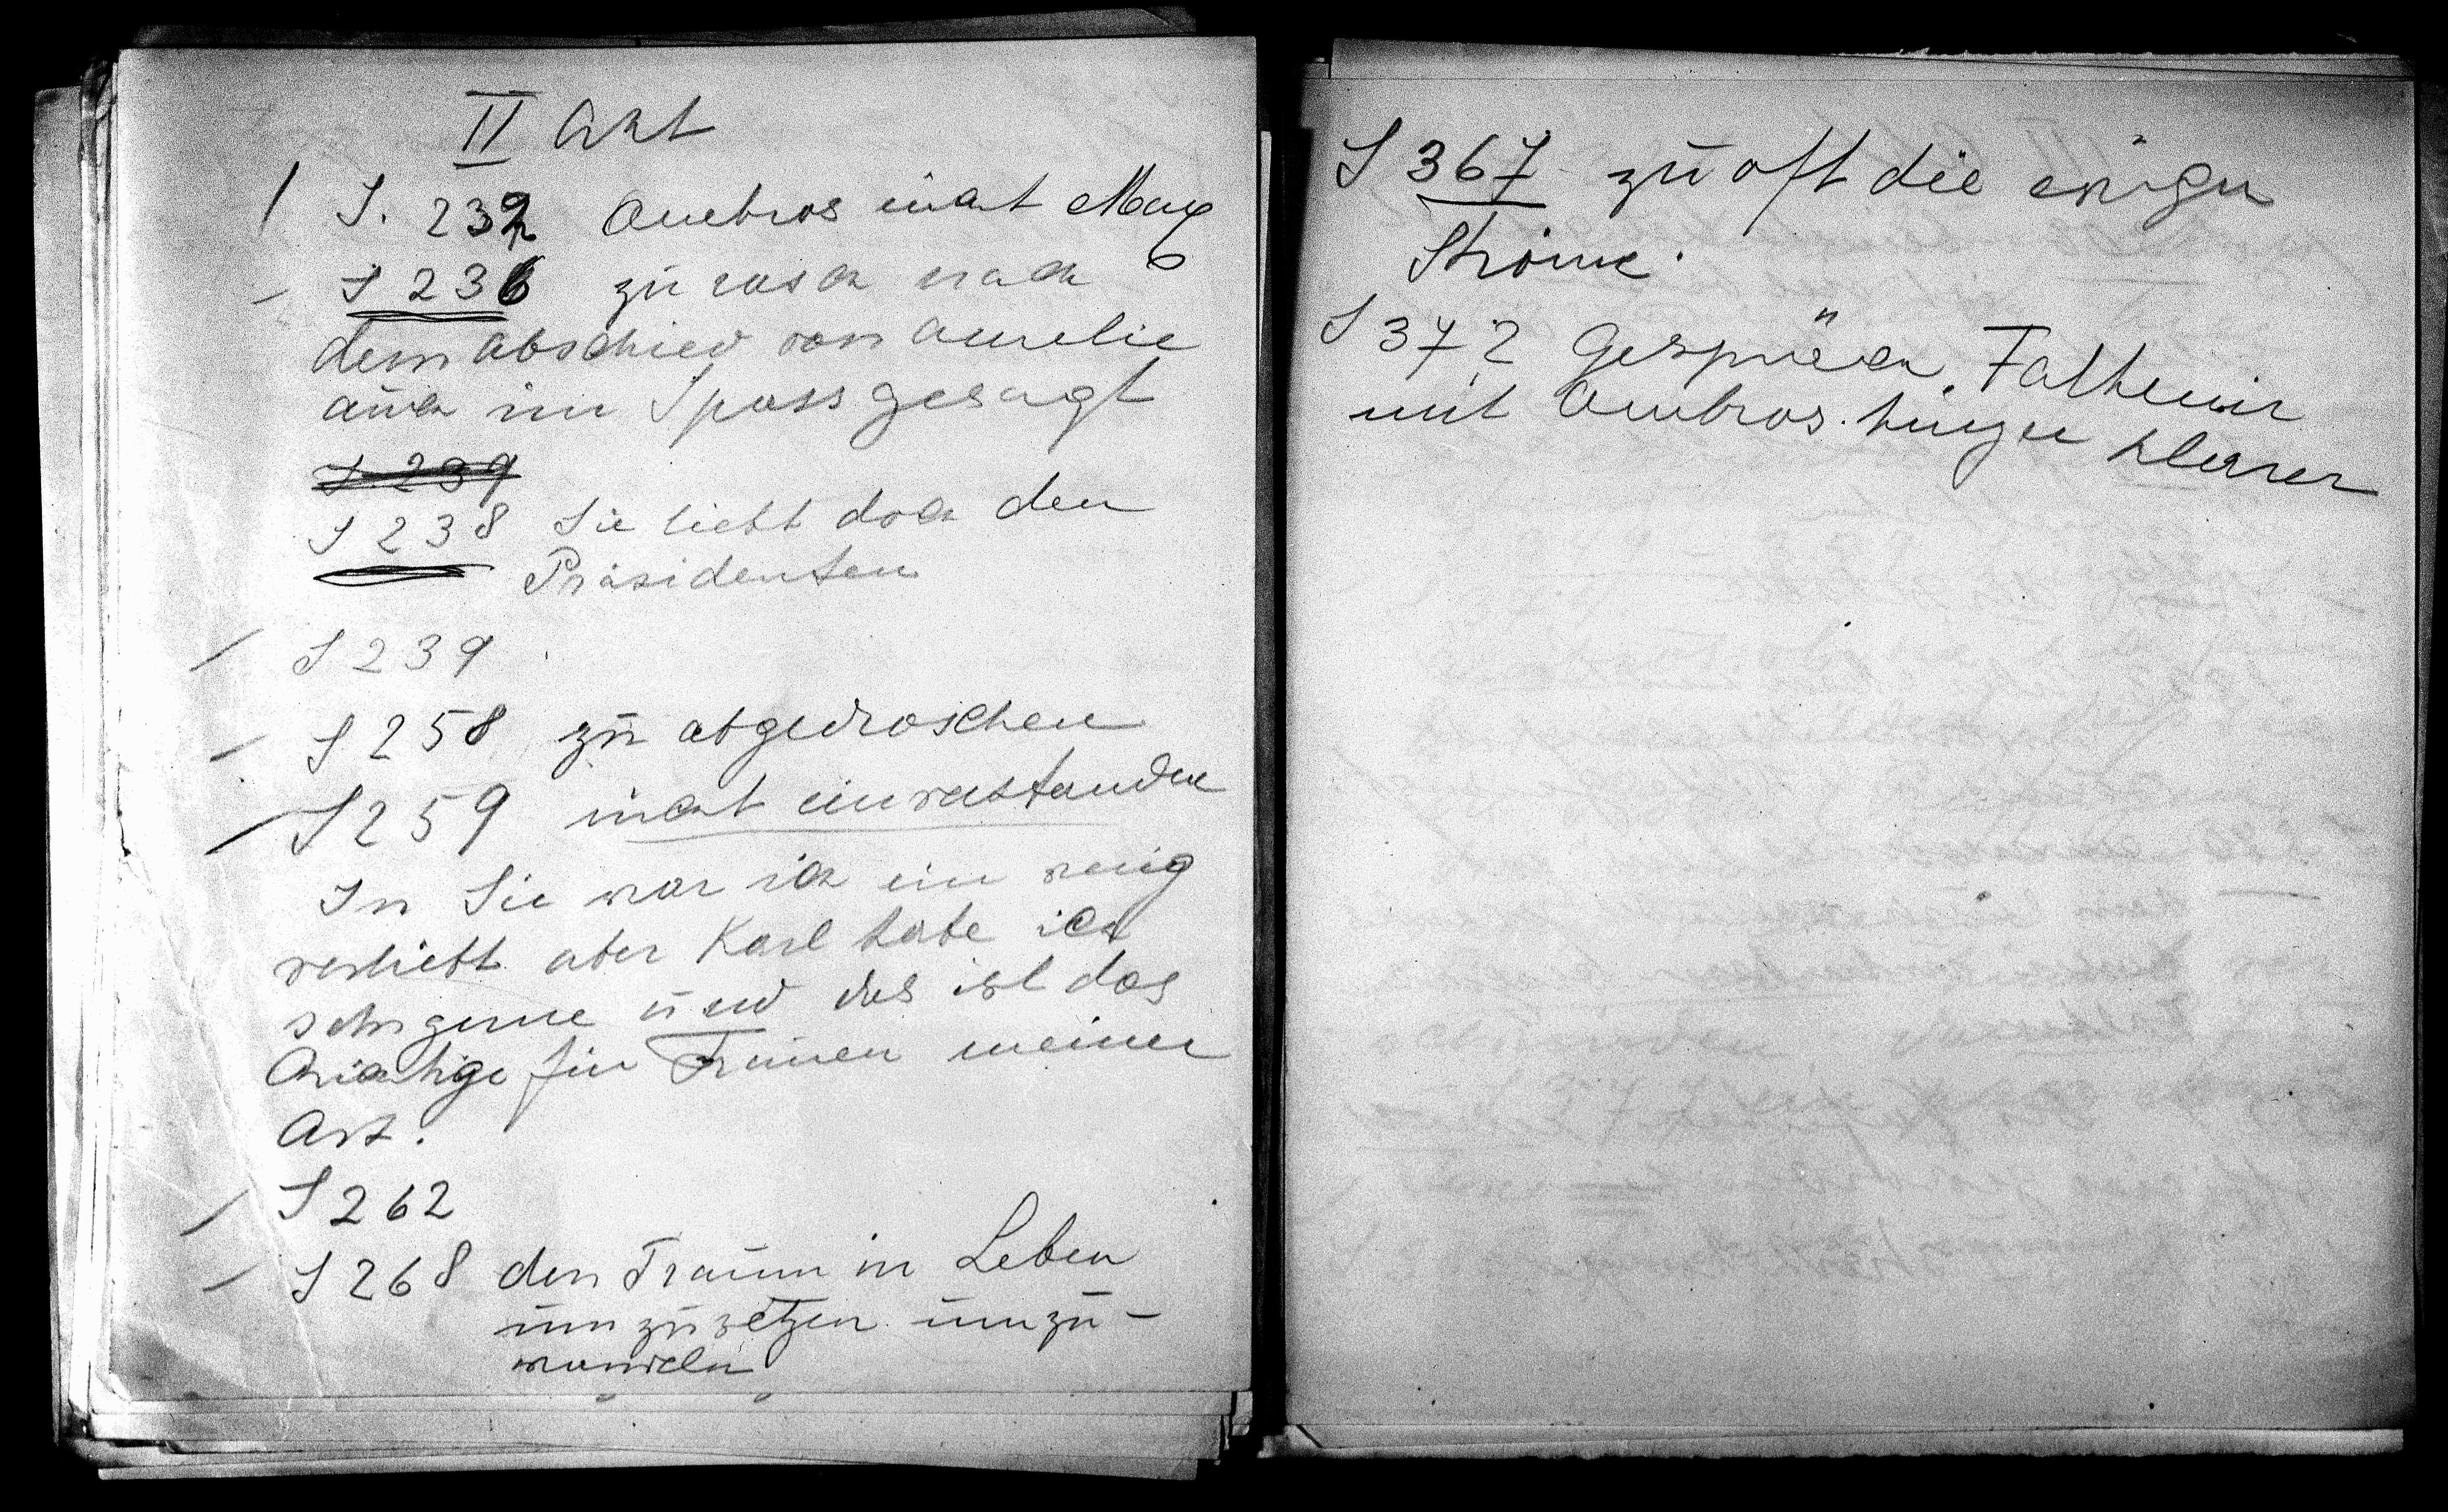 II Akt
S. 232 Ambros nicht Max
S 236 zu rasch nach
dem Abschied von Aurelie
auch im Spass gesagt
S 239
S 238 Sie liebt doch den
Präsidenten
S 239
S 258 zu abgedroschen
S 259 nicht einverstanden
In Sie war ich ein wenig
verliebt aber Karl habe ich
sehr gerne und das ist das
Richtige für Frauen meiner
Art.
S 262
S 268 den Traum in Leben
umzusetzen umzu-
wandeln
S 367 zu oft die ewigen
Ströme.
S 372 Gespräch Falkenir
mit Ambros. kürzer klarer